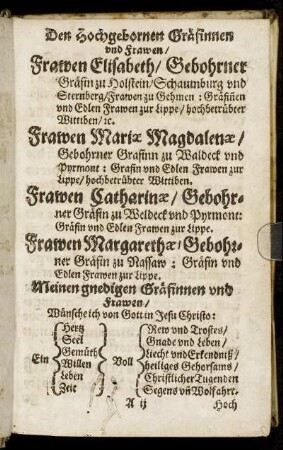 Den Hochgebornen Gräfinnen
vnd Frawen/
Frawen Elisabeth/ Gebohrner
Gräfin zu Holstein/Schaumburg vnd
Sternberg/Frawen zu Gehmen : Gräfiñen
vnd Edlen Frawen zur Lippe/ hochbetrübter
Wittiben/ ꝛc.
Frawen Mariæ Magdalenæ/
Gebohrner Grafinn zu Waldeck vnd
Pyrmont : Grafin vnd Edlen Frawen zur
Lippe/ hochbetrübter Wittiben.
Frawen Catharinæ/ Gebohr-
ner Gräfin zu Weldeck vnd Pyrmont:
Gräfin vnd Edlen Frawen zur Lippe.
Frawen Margarethæ/ Gebohr-
ner Gräfin zu Nassaw : Gräfin vnd
Edlen Frawen zur Lippe.
Meinen gnedigen Gräfinnen vnd
Frawen/
Wünsche ich von Gott in Jesu Christo:
Ein
Hertz
Seel
Gemüth
Willen
Leben
Zeit
Voll
Rew vnd Trostes/
Gnade vnd Leben/
Liecht vnd Erkendniß/
heiliges Gehorsams/
Christlicher Tugenden
Segens vñ Wolfahrt.
A ij
Hoch